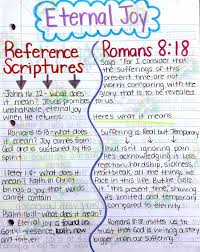 Eternal Joy
Reference
Scriptures
John 16:22 - what does
it mean? Jesus promises
unshakable, eternal joy
when He returns
Romans 15:13 - what does
it mean? Joy comes from
God and is sustained by his
spirit
1 Peter 1:8 - what does it
mean? Faith in Christ
brings a joy that words
cannot contain
Psalm 16:11 - what does it mean?
Eternal joy found in
God's presence, both now
and forever
Romans 8:18
Says "For I consider that
the sufferings of this
present time are not
worth comparing with the
glory that is to be revealed
to us.
Here's what it means
Suffering is Real but Temporary
Paul isn't ignoring pain
He's acknowledging it. Loss,
rejection, hardship, sickness,
heartbreak, all the things we
face in this life. But he calls
"this present time", showing
is limited and temporary
compared to eternity
Romans 8:18 invites us to
trust that God is writing a story
bigger than our suffering